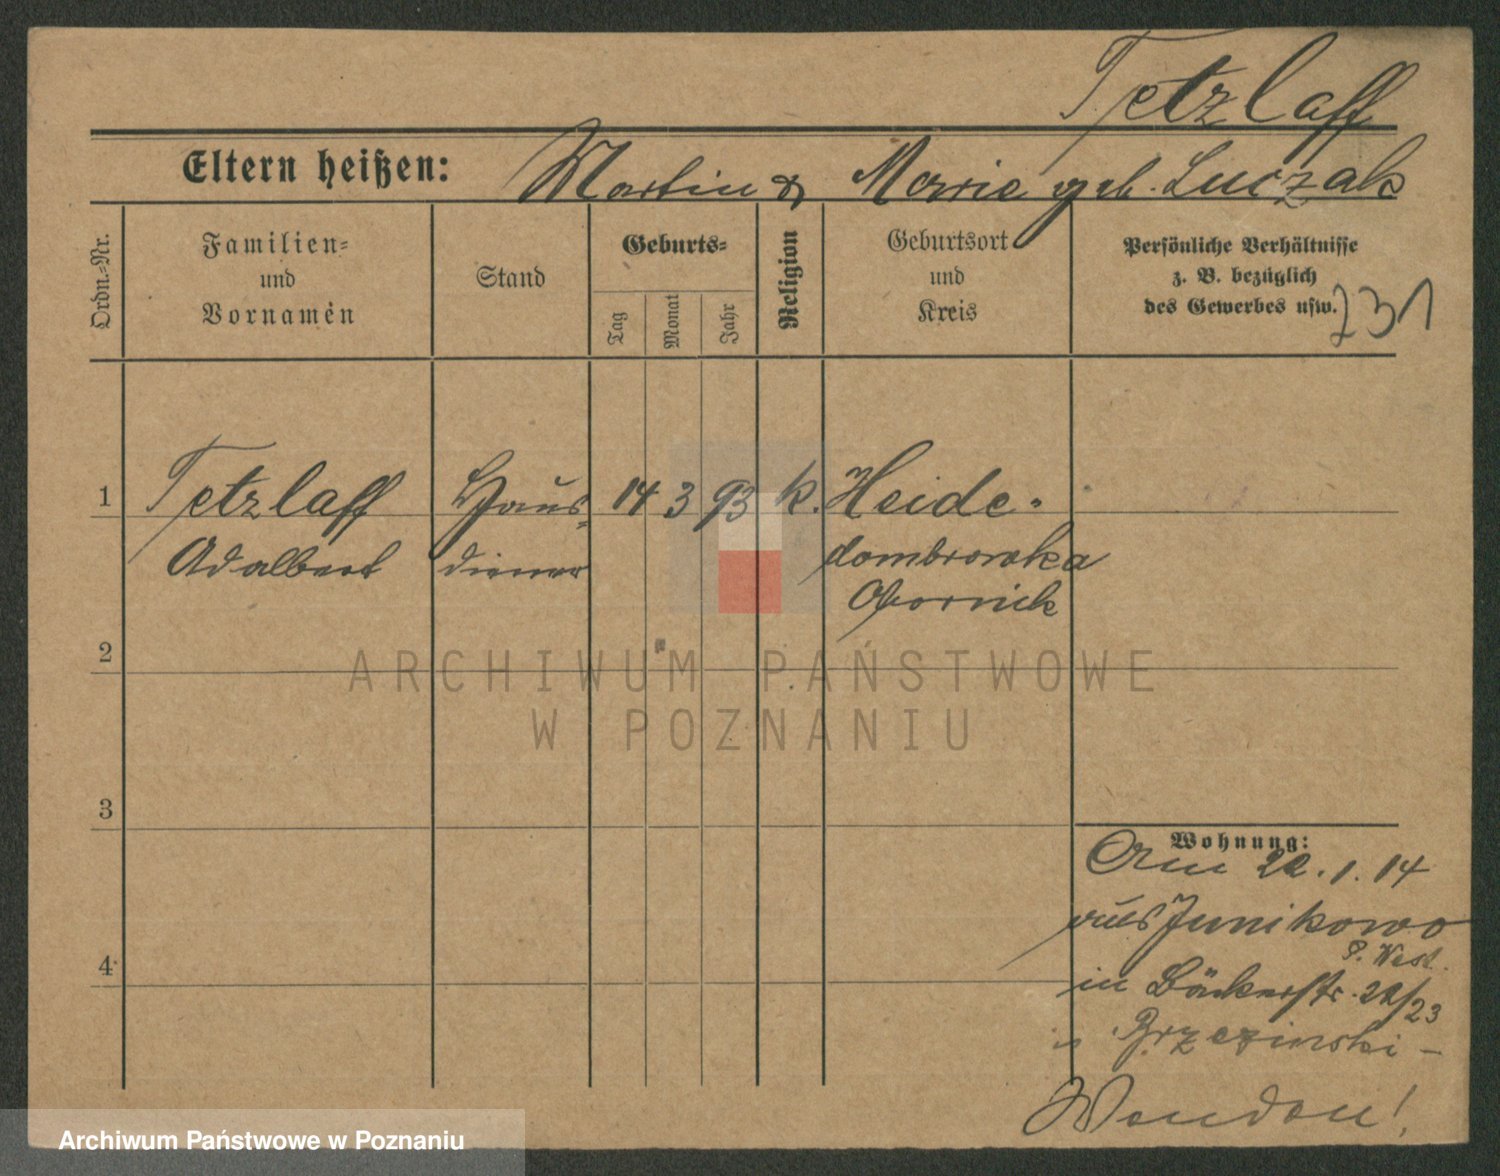 Tetzlaff
Eltern heißen: Martin & Marie geb. Luczak
Ordn.=Nr.
Familien=
und
Vornamen
Stand
Geburts=
Tag
Monat
Jahr
Religion
Geburtsort
und
Kreis
Persönliche Verhältnisse
z. B. bezüglich
des Gewerbes usw.
231
1 Tetzlaff Haus= 14 3 93 k. Heide=
Adalbert diener dombrowka
Obornik
2
ARCHIWUM PAŃSTWOWE
W POZNANIU
3
Wohnung:
Am 22.1.14
aus Junikowo
P. West.
4
in Bäckerstr. 22/23
Brzezinski –
Wenden!
Archiwum Państwowe w Poznaniu